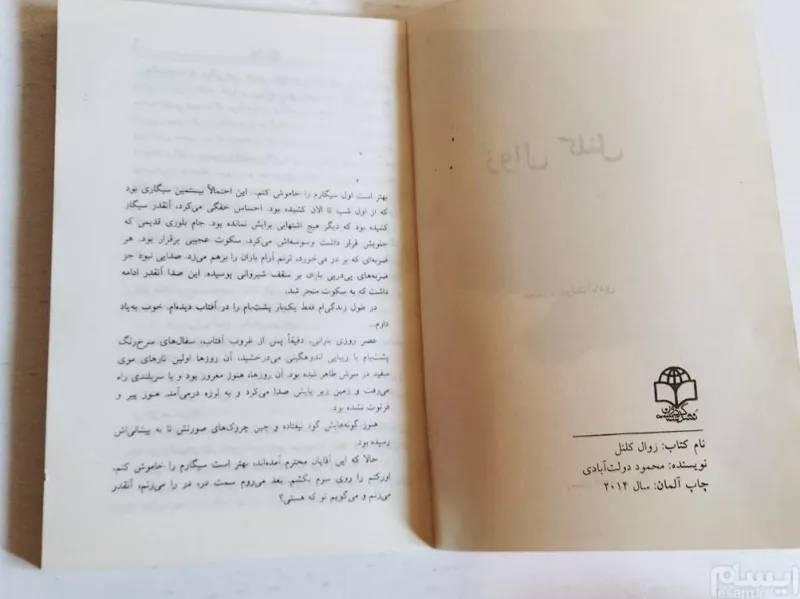 زوال کلنل
نام کتاب: زوال کلنل
نویسنده: محمود دولت‌آبادی
چاپ آلمان: سال ۲۰۱۴
بهتر است اول سیگارم را خاموش کنم... این احتمالاً بیستمین سیگاری بود
که از اول شب تا الان کشیده بود. احساس خفگی می‌کرد، آنقدر سیگار
کشیده بود که دیگر هیچ اشتهایی برایش نمانده بود. جام بلوری قدیمی که
جلویش قرار داشت وسوسه‌اش می‌کرد. سکوت عجیبی برقرار بود. هر
ضربه‌ای که بر در می‌خورد، ترنم آرام باران را برهم می‌زد. صدایی نبود جز
ضربه‌های پی‌درپی باران بر سقف شیروانی پوسیده. این صدا آنقدر ادامه
داشت که به سکوت منجر شد.
در طول زندگی‌ام فقط یک‌بار پشت‌بام را در آفتاب دیده‌ام. خوب به‌یاد
دارم...
عصر روزی بارانی، دقیقاً پس از غروب آفتاب، سفال‌های سرخ‌رنگ
پشت‌بام با زیبایی اندوهگینی می‌درخشید، آن روزها اولین تارهای موی
سفید در سرش ظاهر شده بود. آن روزها، هنوز مغرور بود و با سربلندی راه
می‌رفت و زمین زیر پایش صدا می‌کرد و به لرزه درمی‌آمد. هنوز پیر و
فرتوت نشده بود.
هنوز گونه‌هایش گود نیفتاده و چین چروک‌های صورتش تا به پیشانی‌اش
رسیده بود.
حالا که این آقایان محترم آمده‌اند، بهتر است سیگارم را خاموش کنم،
اورکتم را روی سرم بکشم. بعد می‌روم سمت در، در را می‌زنم، آنقدر
می‌زنم و می‌گویم تو که هستی؟
ایسام
esam.ir